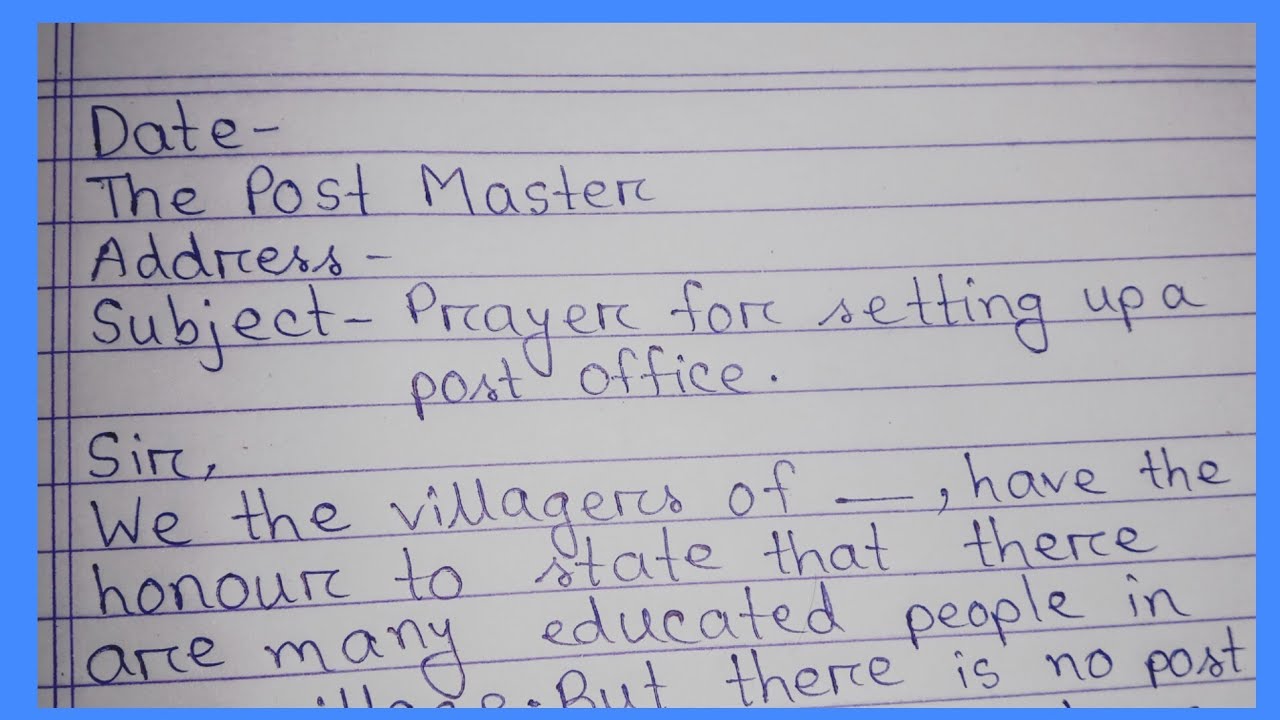 Date-
The Post Master
Address-
Subject- Prayer for setting up a
post office.
Sir,
We the villagers of —, have the
honour to state that there
are many educated people in
village. But there is no post